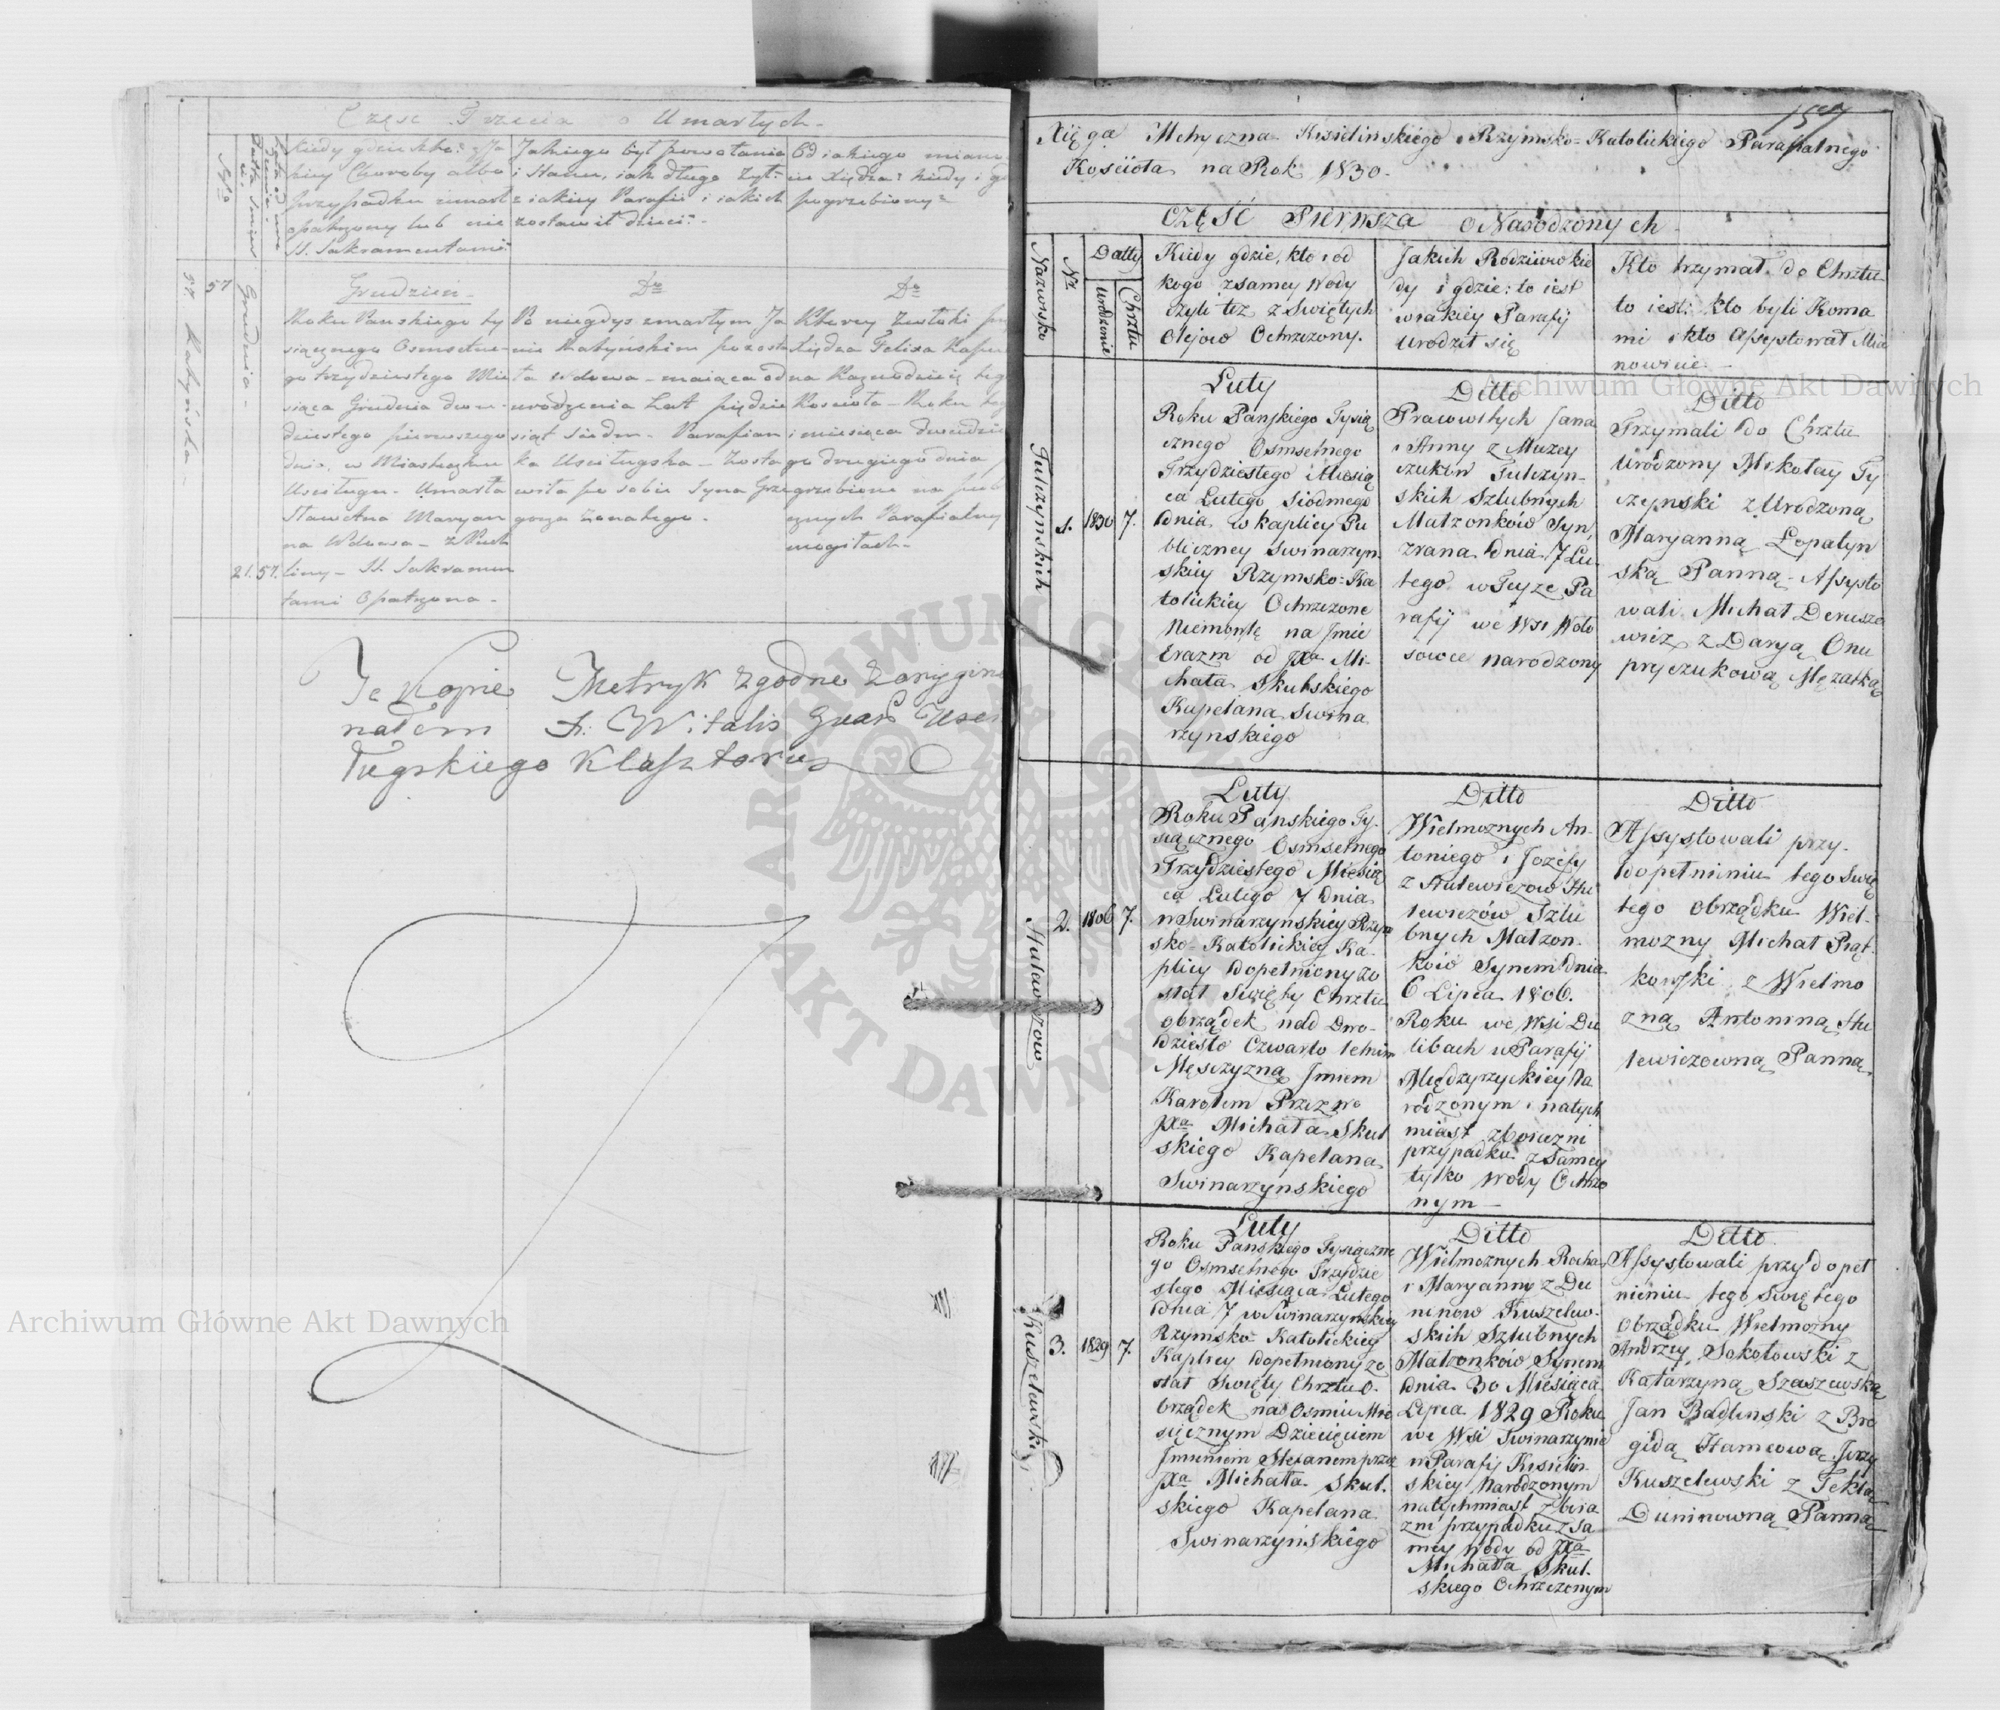 Część Trzecia o Umarłych.
Nro
Kiedy gdzie
kiey Choroby albo
przypadku zmarł
opatrzony lub nie
SS. Sakramentami
Jakiego był powołania
i stanu, iak długo żył:
z iakiey Parafii i iakich
zostawił dzieci:
Od iakiego
xiędza: kiedy i
pogrzebiony:
57
57
Grudnia
Grudzień
Roku Pańskiego ty
siącznego Osmsetne
go trzydziestego Mie
siąca Grudnia dwu
dziestego pierwszego
dnia w Miasteczku
Uściługu - Umarła
Sławetna Maryan
na Wdowa -
21. 57. liny - SS. Sakramen
tami Opatrzona -
Do
Po niegdyś zmarłym Ja
nie Rabyńskim pozosta
ła wdowa - maiąca od
urodzenia Lat pięćdzie
siąt siedm - Parafian
ka Uściługska - Zosta
wiła po sobie Syna Grze
gorza Żonatego.
Do
Którey Zwłoki
Xiędza Felixa
na Kaznodzieię teg
Kościoła - Roku
i miesiąca dwudzie
go drugiego dnia
grzebione na
cznych Parafialny
mogiłach -
Te Kopie Metryk zgodne z orygi
nałem F. Witalis Gwar Uści
ługskiego Klasztoru
Xięga Metryczna Kisielińskiego Rzymsko-Katolickiego Parafialnego
Kościoła na Rok 1830.
CZĘŚĆ Pierwsza o Narodzonych
Nazwisko
Nr
Datty
Urodzenie
Chrztu
Kiedy gdzie, kto i od
kogo z samey wody
czyli też z Świętych
Olejow Ochrzczony.
Jakich Rodziców kie
dy i gdzie: to iest
w iakiey Parafij
urodził się
Kto trzymał do Chrztu
to iest: kto byli Koma
mi i kto Assystował Mia
nowicie.
Tulczynskich
1. 1830 7.
Luty
Roku Pańskiego Tysią
cznego Osmsetnego
Trzydziestego Miesią
ca Lutego siodmego
dnia w kaplicy Pu
bliczney Swinarzyn
skiey Rzymsko=Ka
tolickiey Ochrzczone
Niemowlę na Jmie
Erazm od Jxa Mi-
chała Skulskiego
Kapelana Swina
rzynskiego
Ditto
Pracowitych Jana
i Anny z Muzey
czuków Tulczyn-
skich Szlubnych
Małzonków Syn,
zrana dnia 7 Lu
tego w Teyże Pa
rafij we Wsi Woło
sowce narodzony
Ditto
Trzymali do Chrztu
Urodzony Mikołay Ty
czynski z Urodzoną
Maryanną Łopatyn
ską Panną - Assysto
wali Michał Derusze
wicz z Daryą Onu
pryczukową Mężatką
Hulewiczow
2. 1806 7.
Luty
Roku Pańskiego Ty-
siącznego Osmsetnego
Trzydziestego Miesią
ca Lutego 7 dnia
w Swinarzynskiey Rzym
sko-Katolickiey Ka-
plicy dopełniony zo
stał Święty Chrztu
obrządek nad Dwu-
dziesto Czwarto letnim
Męsczyzną Jmiem
Karolem Przez
Jxa Michała Skul
skiego Kapelana
Swinarzynskiego
Ditto
Wielmożnych An-
toniego i Jozefy
z Hulewiczow Hu
lewiczów Szlu
bnych Małzon-
ków Synem dnia
6 Lipca 1806.
Roku we Wsi Du
libach w Parafij
Międzyrzyckiey Na
rodzonym i natych
miast z boiazni
przypadku z samey
tylko wody Ochrzo
nym -
Ditto
Assystowali przy-
dopełnieniu tego Świę
tego obrządku Wiel-
mozny Michał Piąt-
kowski z Wielmo
żną Antoniną Hu
lewiczowną Panną.
Kuszelewski
3. 1829 7.
Luty
Roku Pańskiego Tysiączne
go Osmsetnego Trzydzie
stego Miesiąca Lutego
dnia 7 w Swinarzynskiey
Rzymsko Katolickiey
Kaplicy dopełniony zo
stał Święty Chrztu O-
brządek nad Osmiu Mie
sięcznym Dziecięciem
Jmieniem Stefanem przez
Jxa Michała Skul-
skiego Kapelana
Swinarzyńskiego
Ditto
Wielmożnych Rocha
i Maryanny z Du
ninow Kuszelew-
skich Szlubnych
Małzonków Synem
dnia 30 Miesiąca
Lipca 1829 Roku
we Wsi Swinarzynie
w Parafij Kisielin-
skiey Narodzonym
natychmiast z boia
zni przypadku z sa-
mey Wody od Jxa
Michała Skul-
skiego Ochrzczonym
Ditto
Assystowali przy dopeł
nieniu tego Świętego
obrządku Wielmożny
Andrzey Sokołowski z
Katarzyną Szaszewską
Jan Badlinski z Bry
gidą Hamcową, Jerzy
Kuszelewski z Teklą
Duninowną Panną
Archiwum Główne Akt Dawnych
Archiwum Główne Akt Dawnych
ARCHIWUM GŁÓWNE AKT DAWNYCH